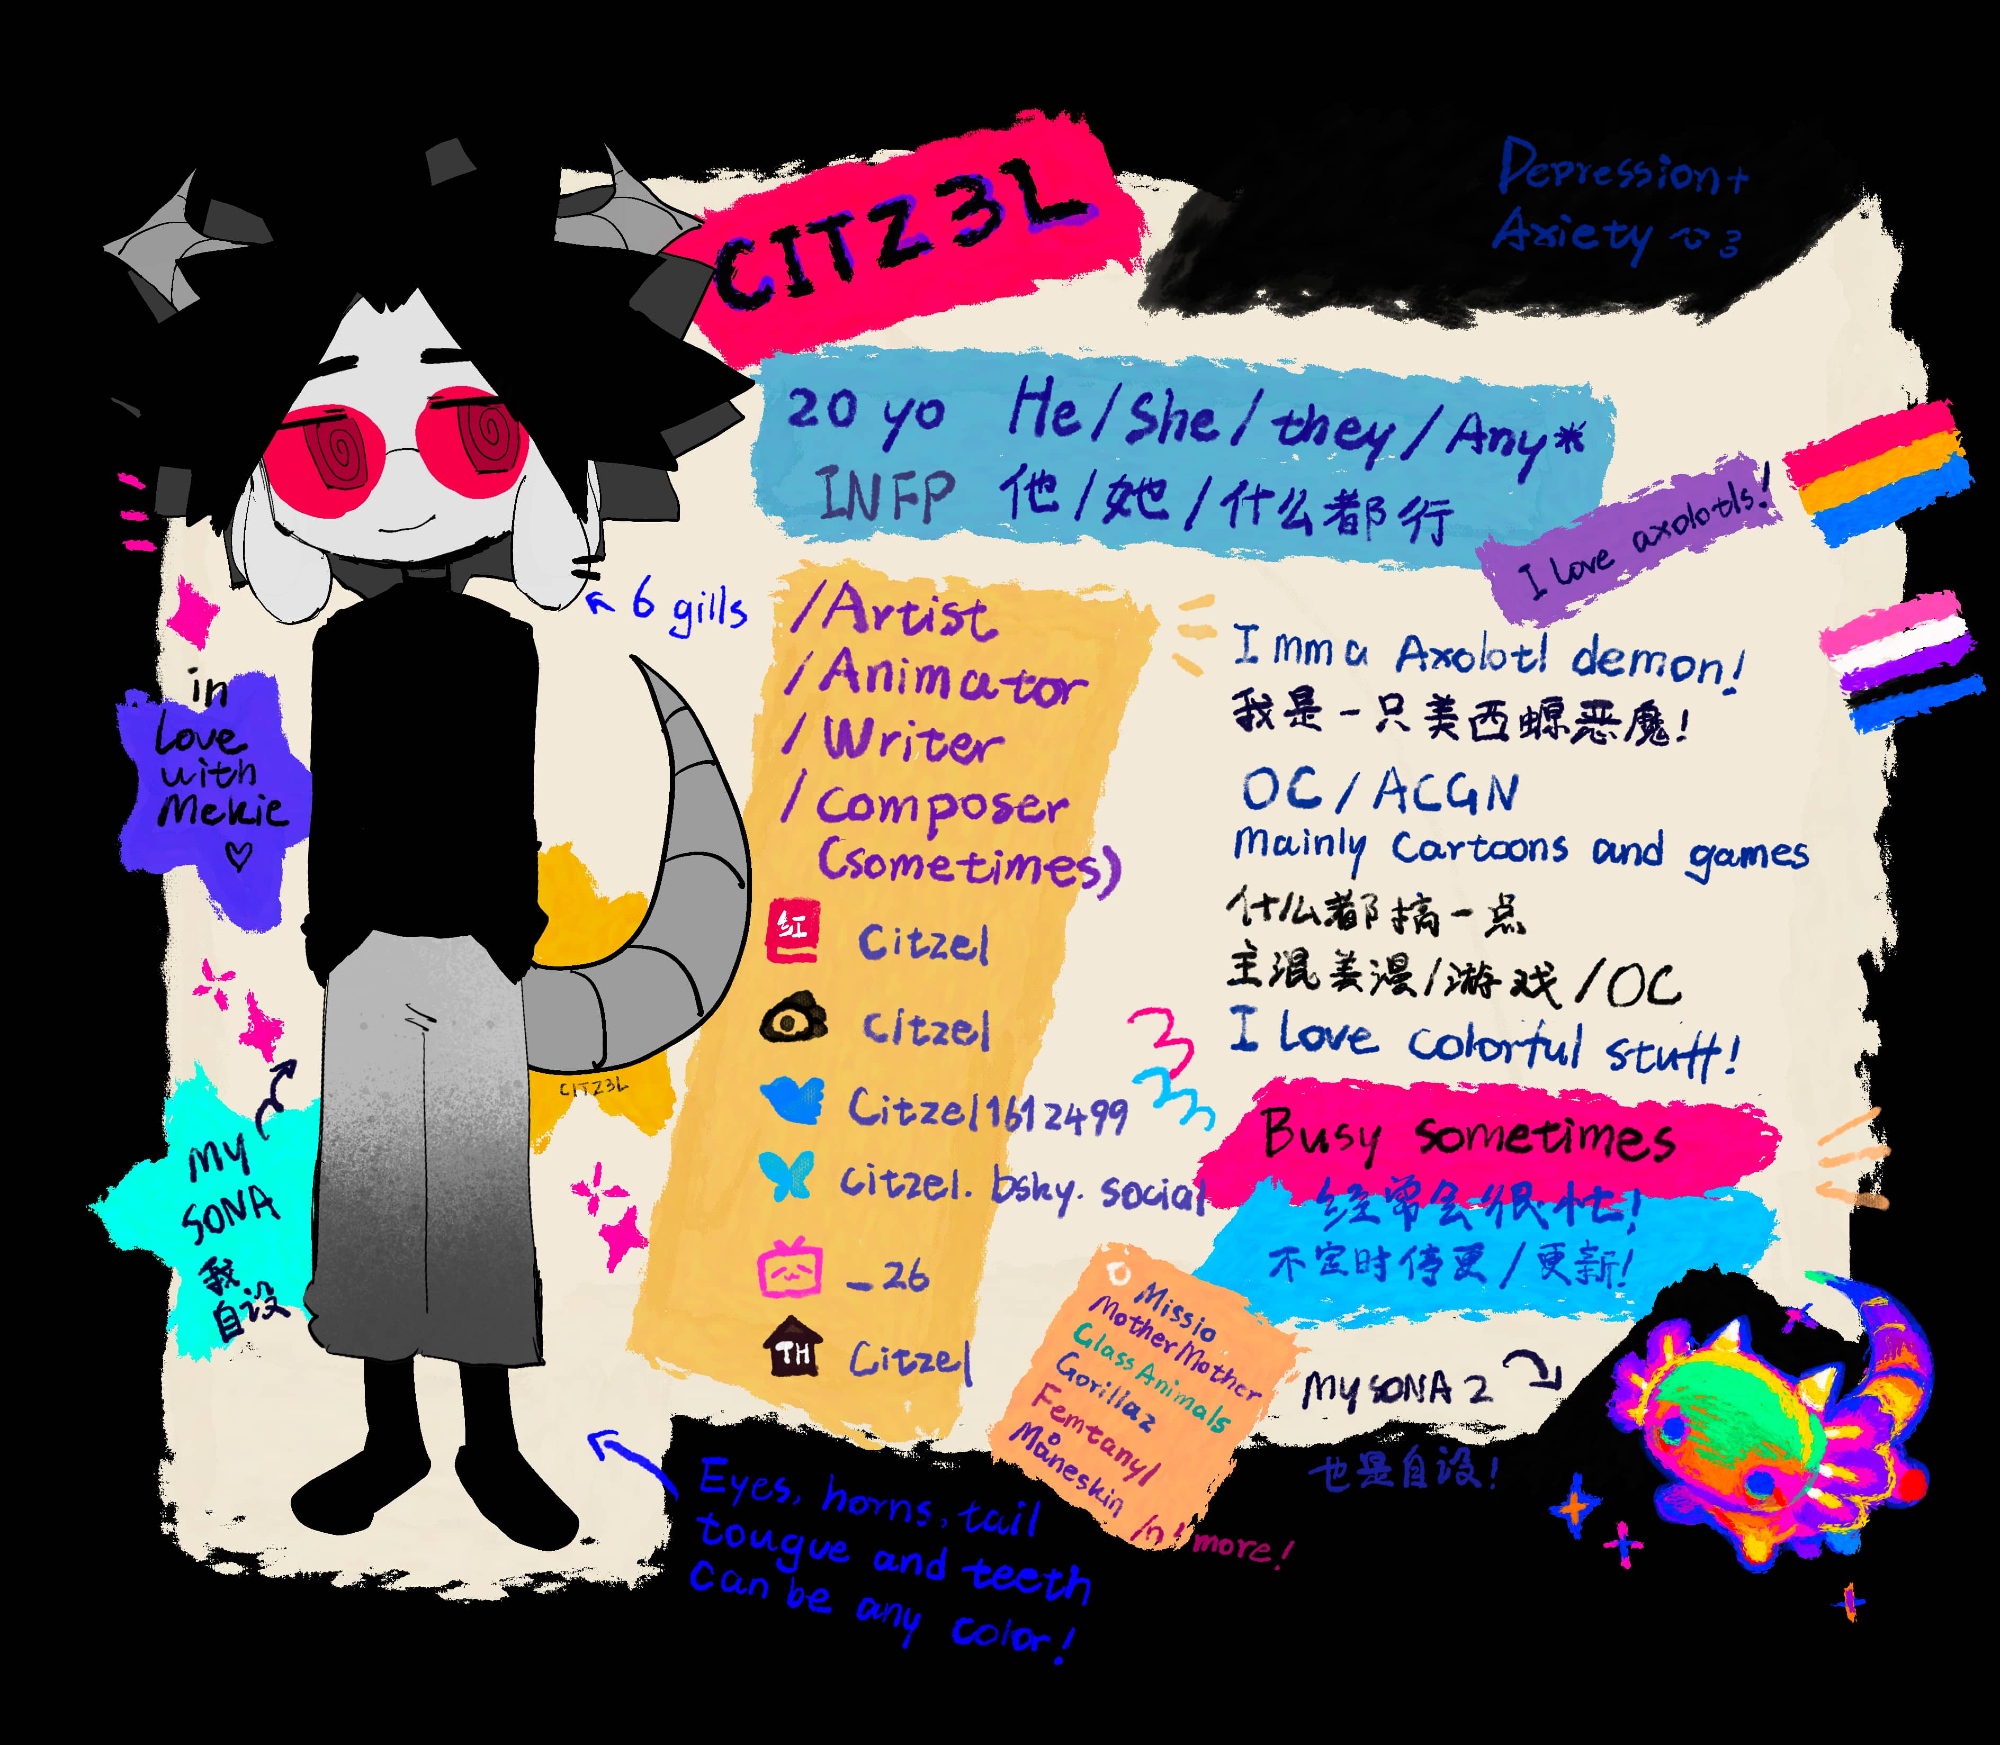 CITZ3L
Depression+
Axiety
20 yo He/She/they/Any*
INFP 他/她/什么都行
I love axolotls!
← 6 gills
/Artist
/Animator
/Writer
/composer
(sometimes)
I mma Axolotl demon!
我是一只美西螈恶魔!
OC/ACGN
Mainly Cartoons and games
什么都搞一点
主混美漫/游戏/OC
I love colorful stuff!
in
love
with
Mekie
♡
红 Citzel
Citzel
Citzel1612499
Citzel.bsky.social
_26
TH Citzel
CITZ3L
MY
SONA
我
自设
Busy sometimes
经常会很忙!
不定时停更/更新!
Missio
MotherMother
GlassAnimals
Gorillaz
Femtanyl
Måneskin
/n' more!
MY SONA 2
也是自设!
Eyes, horns, tail
tougue and teeth
can be any color!